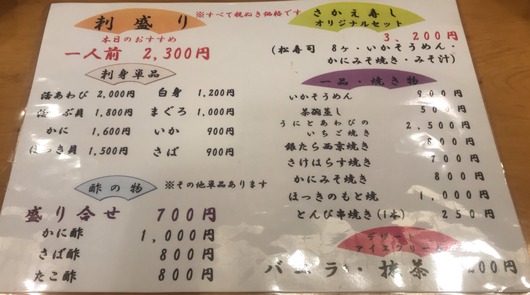 刺盛り
※すべて税ぬき価格です
本日のおすすめ
一人前 2,300円
刺身単品
活あわび 2,000円 白身 1,200円
活つぶ貝 1,800円 まぐろ 1,000円
かに 1,600円 いか 900円
ほっき貝 1,500円 さば 900円
酢の物
※その他単品あります
盛り合せ 700円
かに酢 1,000円
さば酢 800円
たこ酢 800円
さかえ寿し
オリジナルセット
3,200円
(松寿司 8ヶ・いかそうめん・
かにみそ焼き・みそ汁)
一品・焼き物
いかそうめん 900円
茶碗蒸し 500円
うにとあわびの
いちご焼き 2,500円
銀たら西京焼き 800円
さけはらす焼き 700円
かにみそ焼き 800円
ほっきのもと焼 1,000円
とんび串焼き(1本) 250円
デザート
アイスクリーム
バニラ・抹茶 200円